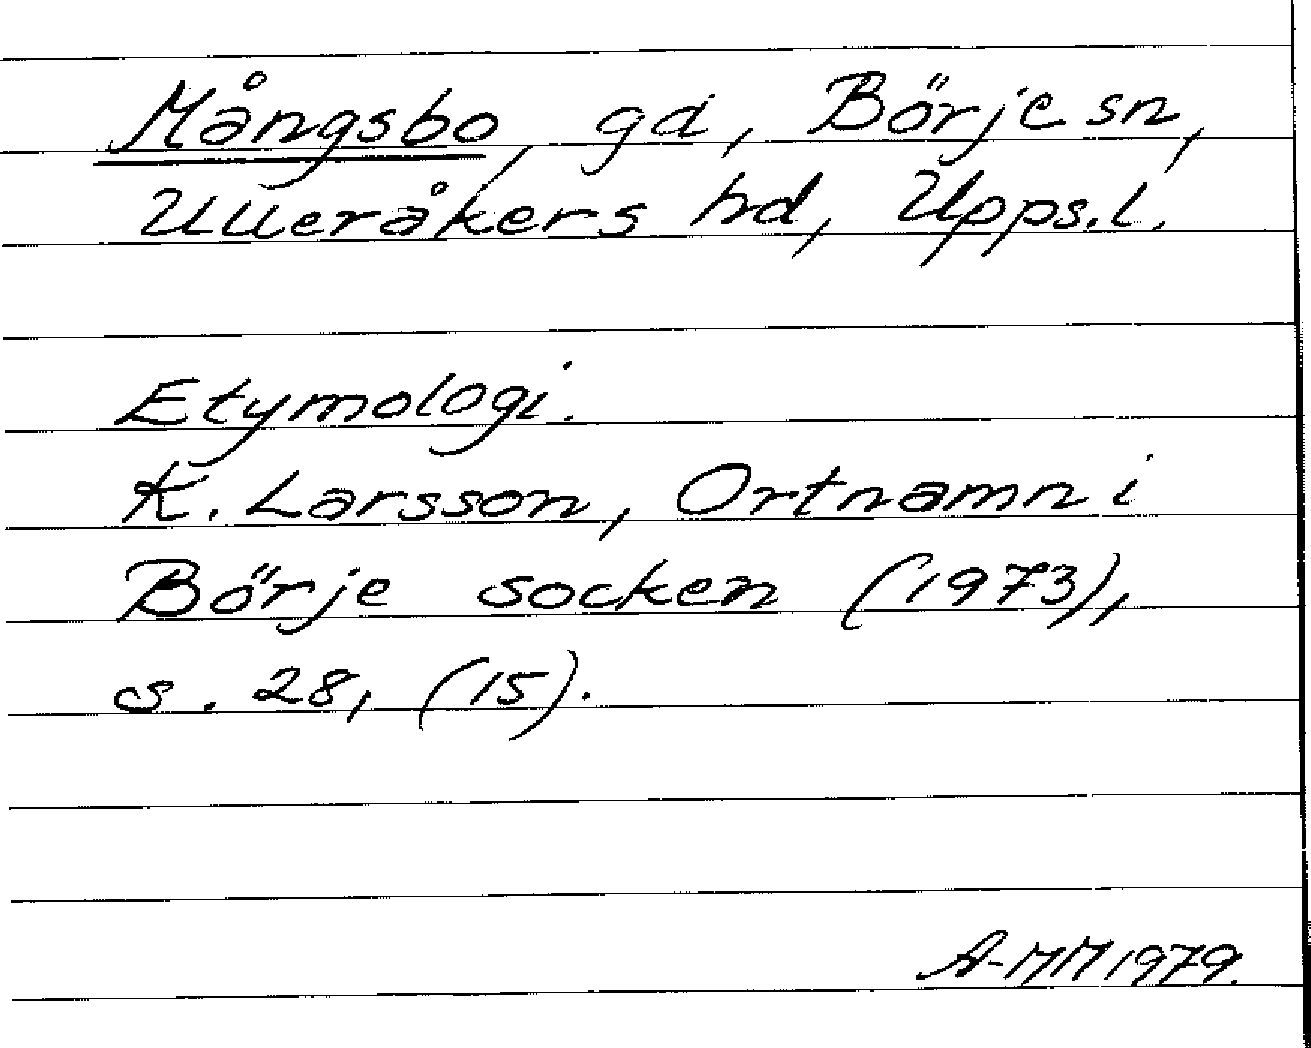 Mångsbo, gd, Börje sn,
Ulleråkers hd, Upps.l.
Etymologi.
K. Larsson, Ortnamn i
Börje socken (1973),
s. 28, (15).
A-MM 1979.